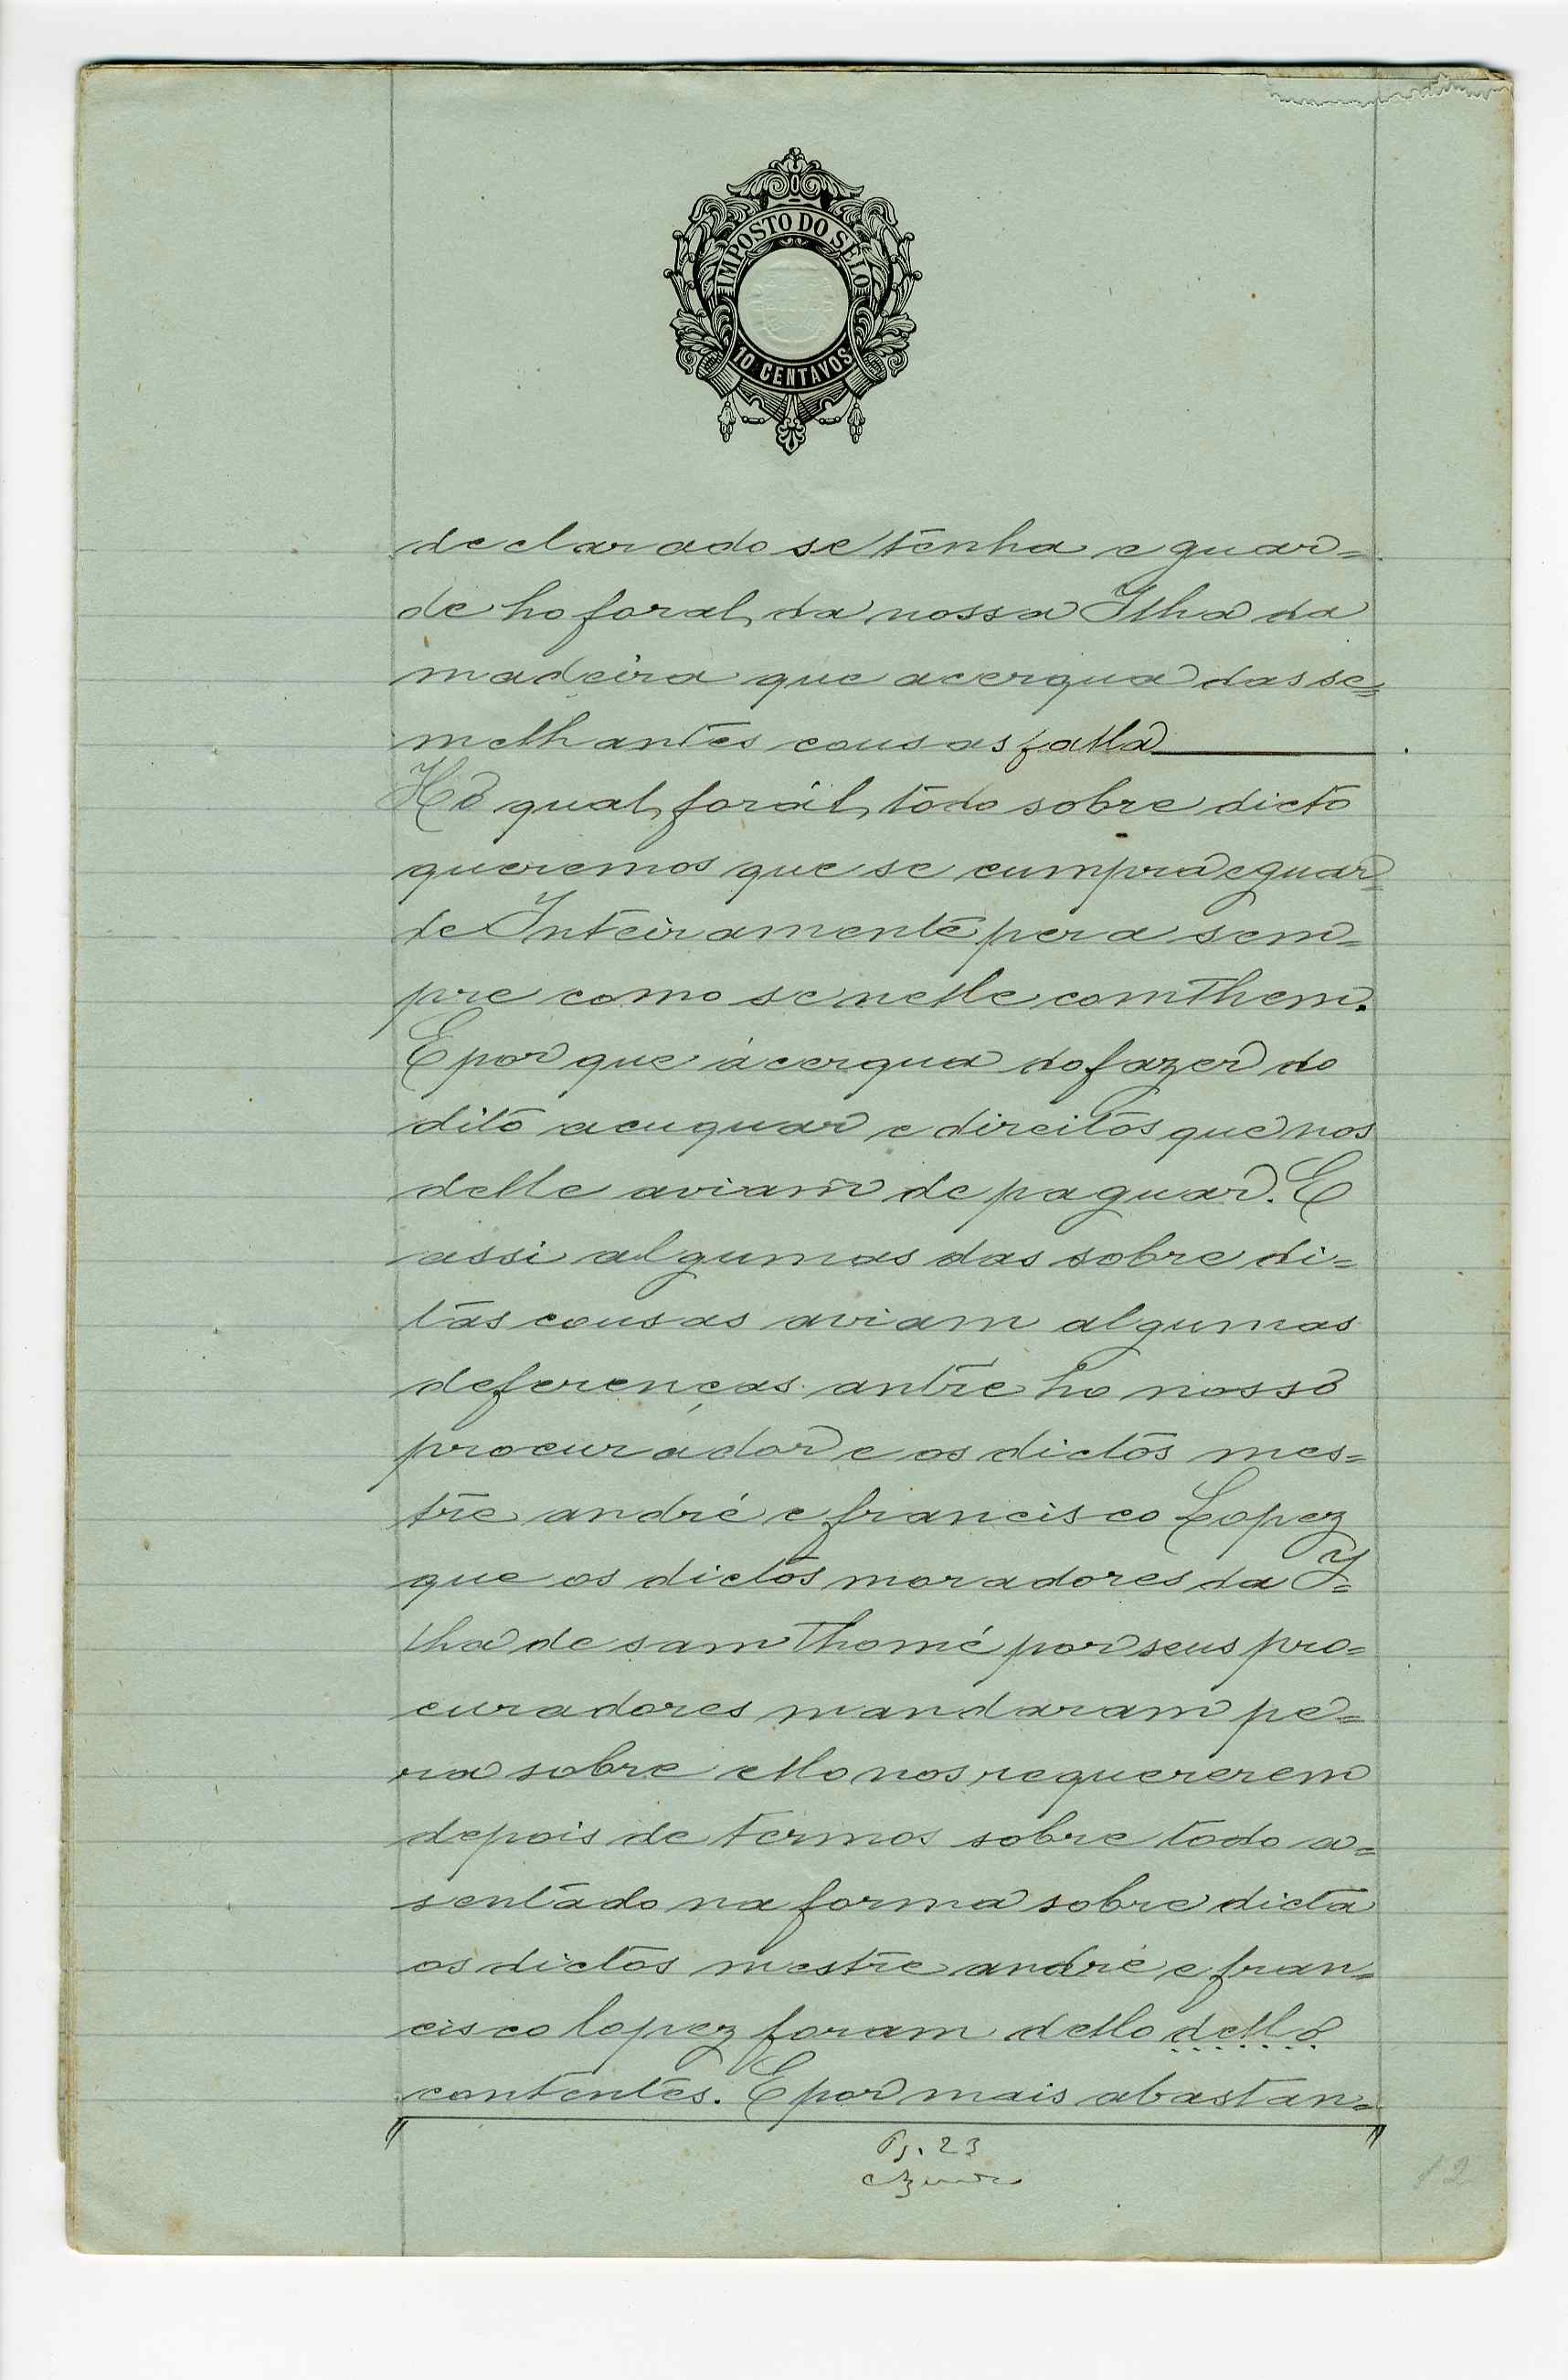 IMPOSTO DO SELO
10 CENTAVOS
declarado se tenha e guar=
de ho foral da nossa Ilha da
madeira que acerqua das se=
melhantes cousas falla
Ho qual forál todo sobre dicto
queremos que se cumpra e guar=
de Inteiramente pera sem=
pre como se nelle comthem.
E por que ácerqua do fazer do
dito acuquar e direitos que nos
delle aviam de paguar. E
assi algumas das sobre di=
tas cousas aviam algumas
deferenças antre ho nosso
procurador e os dictos mes=
tre andré e francisco Lopez
que os dictos moradores da I=
lha de sam Thomé por seus pro=
curadores mandaram pe=
ra sobre ello nos requererem
depois de termos sobre todo a=
sentado na forma sobre dicta
os dictos mestre andré e fran=
cisco lopez foram dello dello
contentes. E por mais abastan=
Pg. 23
12